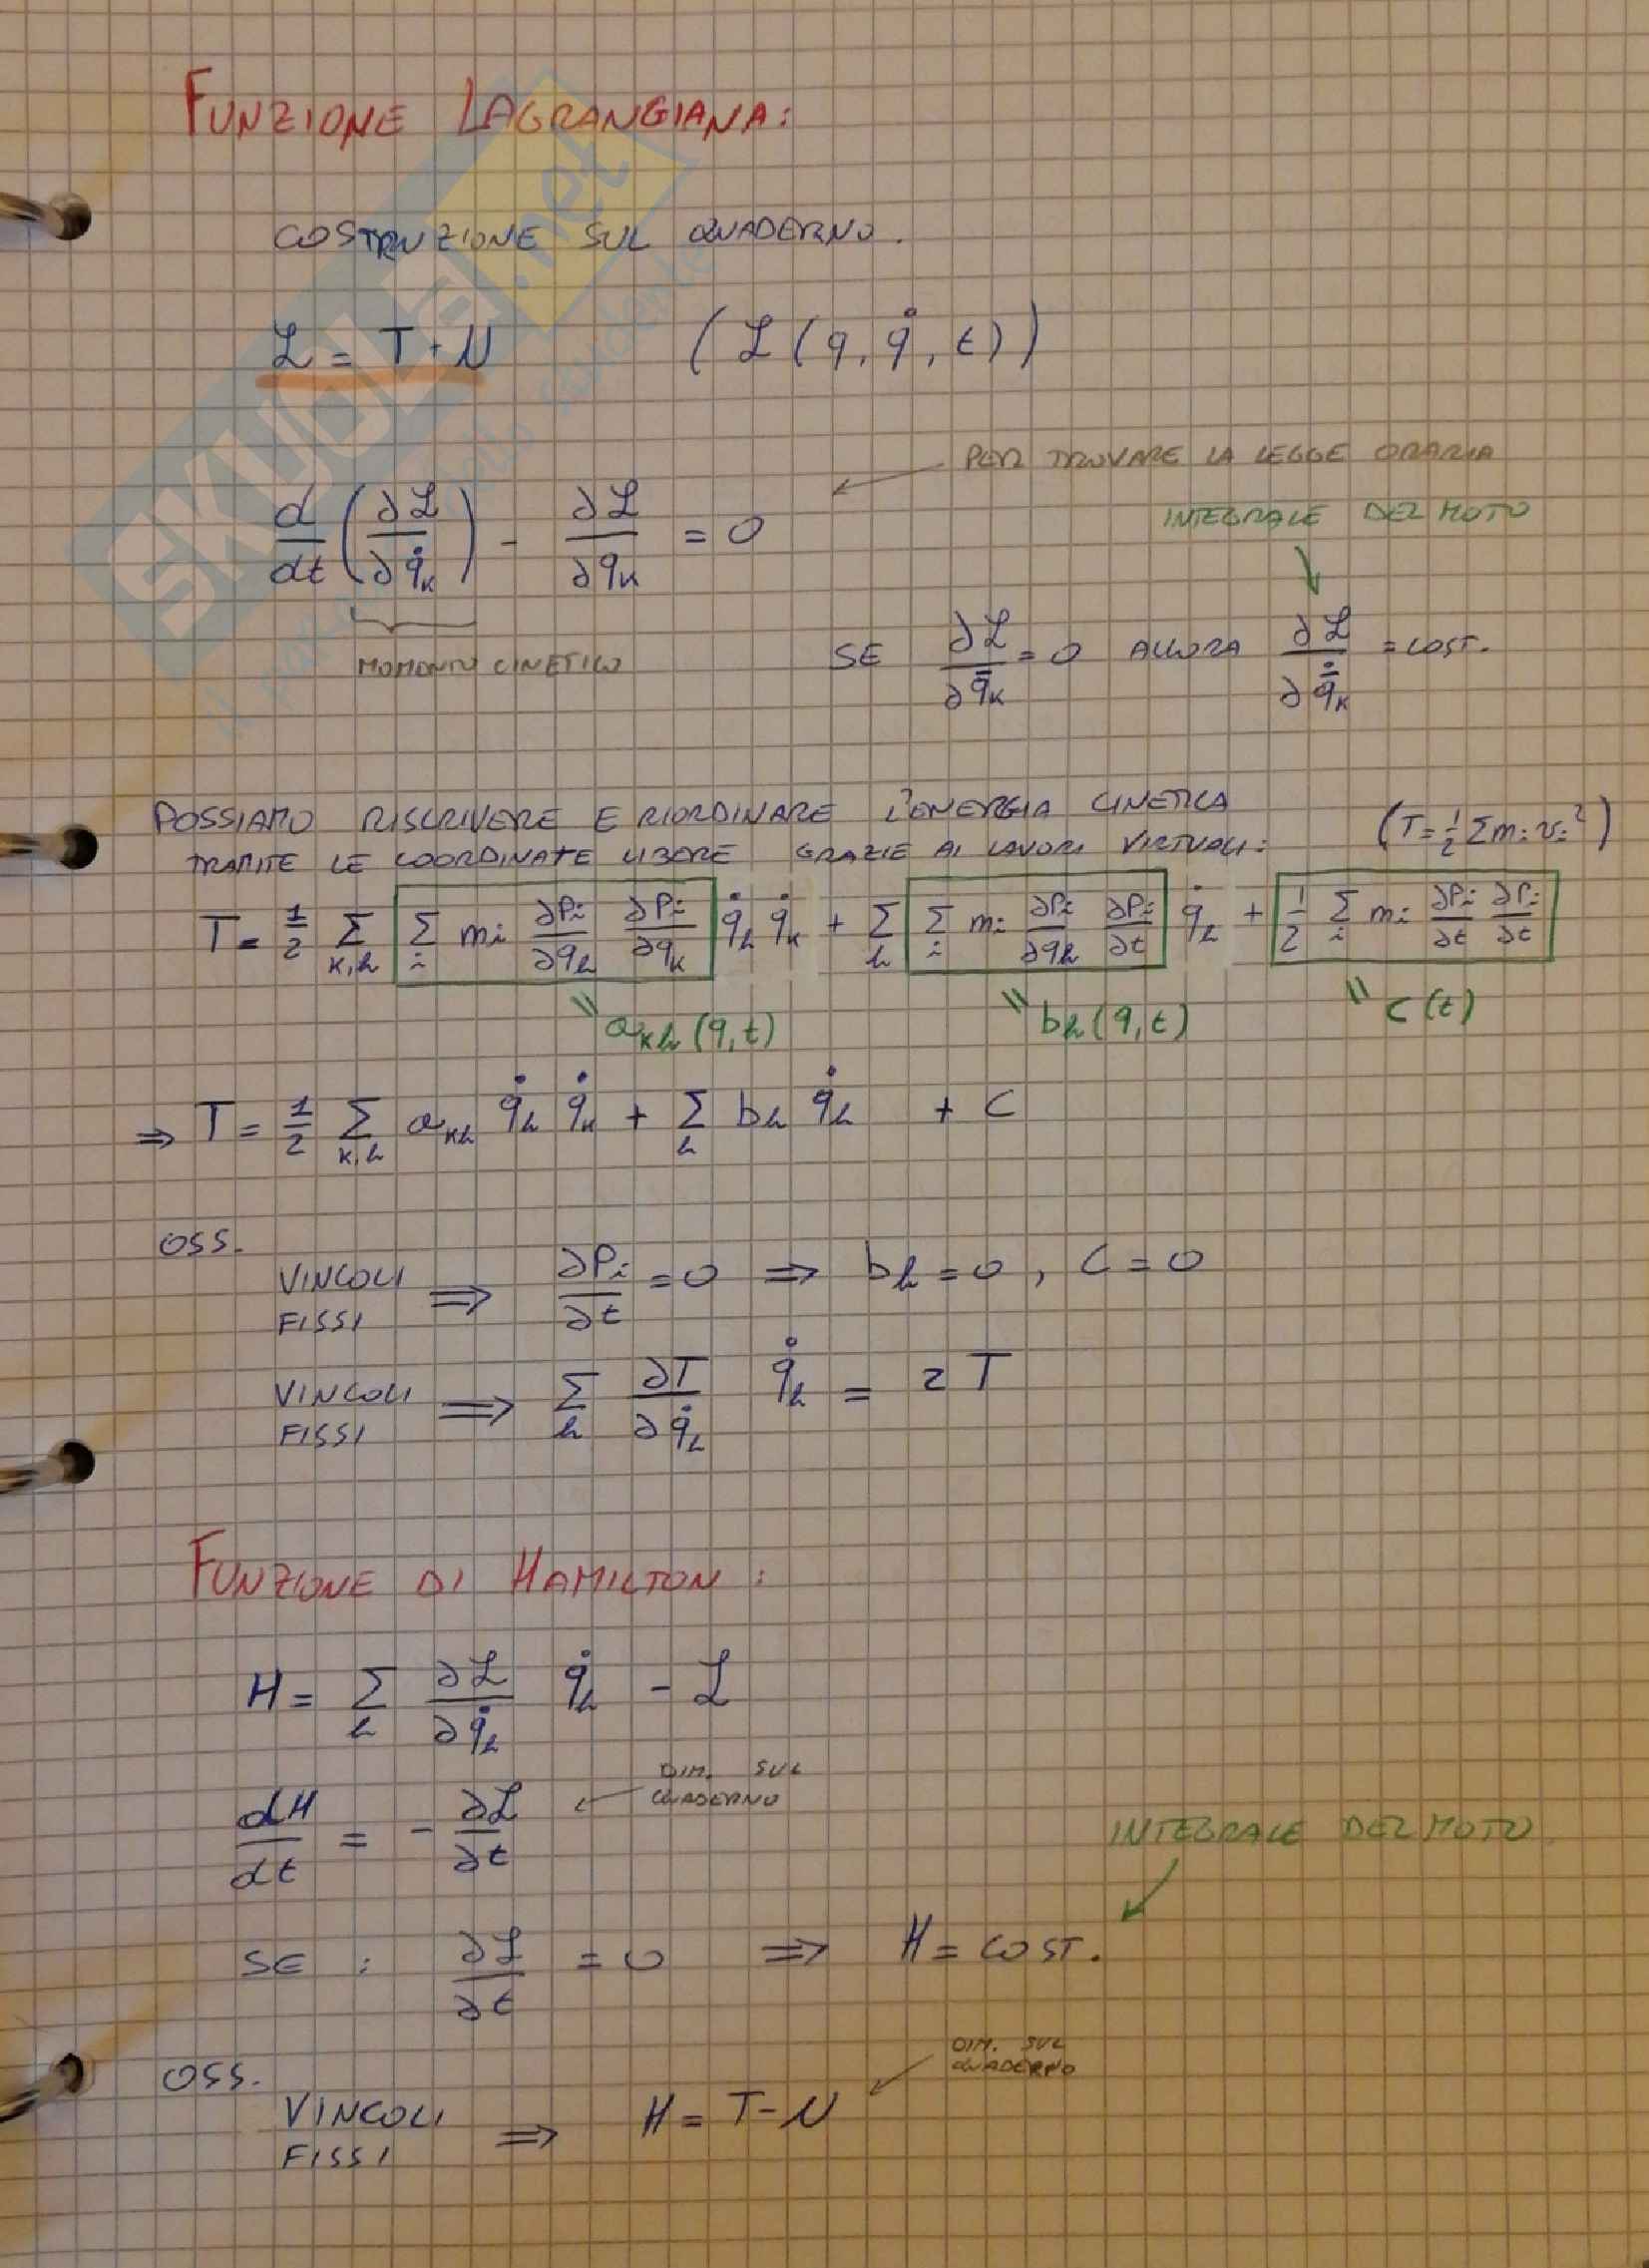 FUNZIONE LAGRANGIANA:
COSTRUZIONE SUL QUADERNO.
ℒ = T + U (ℒ(q, q̇, t))
PER TROVARE LA LEGGE ORARIA
d/dt (∂ℒ/∂q̇ₖ) - ∂ℒ/∂qₖ = 0
INTEGRALE DEL MOTO
MOMENTO CINETICO
SE ∂ℒ/∂q̄ₖ = 0 ALLORA ∂ℒ/∂q̄̇ₖ = COST.
POSSIAMO RISCRIVERE E RIORDINARE L'ENERGIA CINETICA
TRAMITE LE COORDINATE LIBERE GRAZIE AI LAVORI VIRTUALI: (T = 1/2 Σ mᵢ vᵢ²)
T = 1/2 Σ_{k,h} Σ_i mᵢ ∂Pᵢ/∂q_h ∂Pᵢ/∂q_k q̇_h q̇_k + Σ_h Σ_i mᵢ ∂Pᵢ/∂q_h ∂Pᵢ/∂t q̇_h + 1/2 Σ_i mᵢ ∂Pᵢ/∂t ∂Pᵢ/∂t
" a_{kh}(q,t) " b_h(q,t) " C(t)
⇒ T = 1/2 Σ_{k,h} a_{kh} q̇_h q̇_k + Σ_h b_h q̇_h + C
OSS.
VINCOLI FISSI ⇒ ∂Pᵢ/∂t = 0 ⇒ b_h = 0, C = 0
VINCOLI FISSI ⇒ Σ_h ∂T/∂q̇_h q̇_h = 2T
FUNZIONE DI HAMILTON:
H = Σ_h ∂ℒ/∂q̇_h q̇_h - ℒ
DIM. SUL
QUADERNO
dH/dt = - ∂ℒ/∂t
INTEGRALE DEL MOTO
SE: ∂ℒ/∂t = 0 ⇒ H = COST.
DIM. SUL
QUADERNO
OSS.
VINCOLI FISSI ⇒ H = T - U
SKUOLA.net